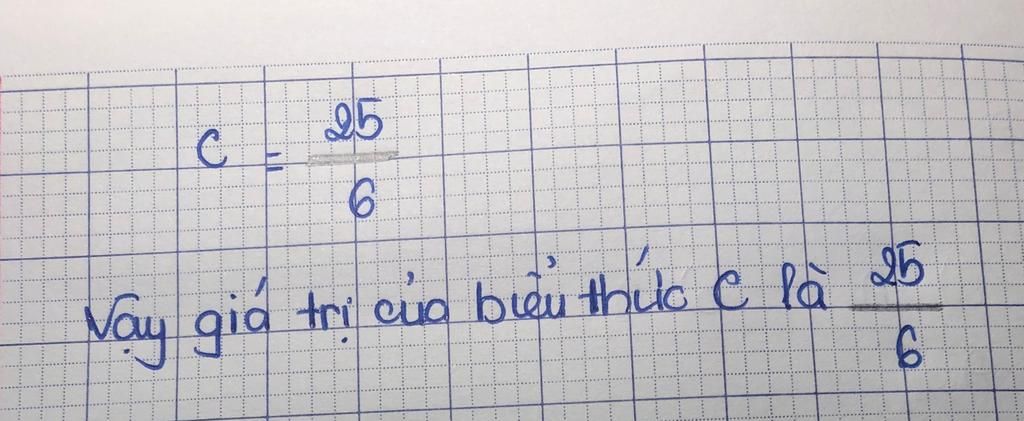 C = 25/6
Vậy giá trị của biểu thức C là 25/6